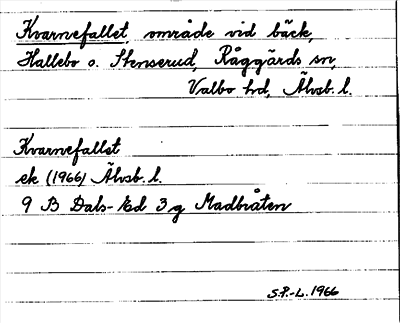 Kvarnefallet, område vid bäck,
Hallebo o. Stenserud, Råggärds sn,
Valbo hd, Älvsb. l.
Kvarnefallet
ek (1966) Älvsb. l.
9 B Dals-Ed 3 g Madbråten
S.P.-L. 1966